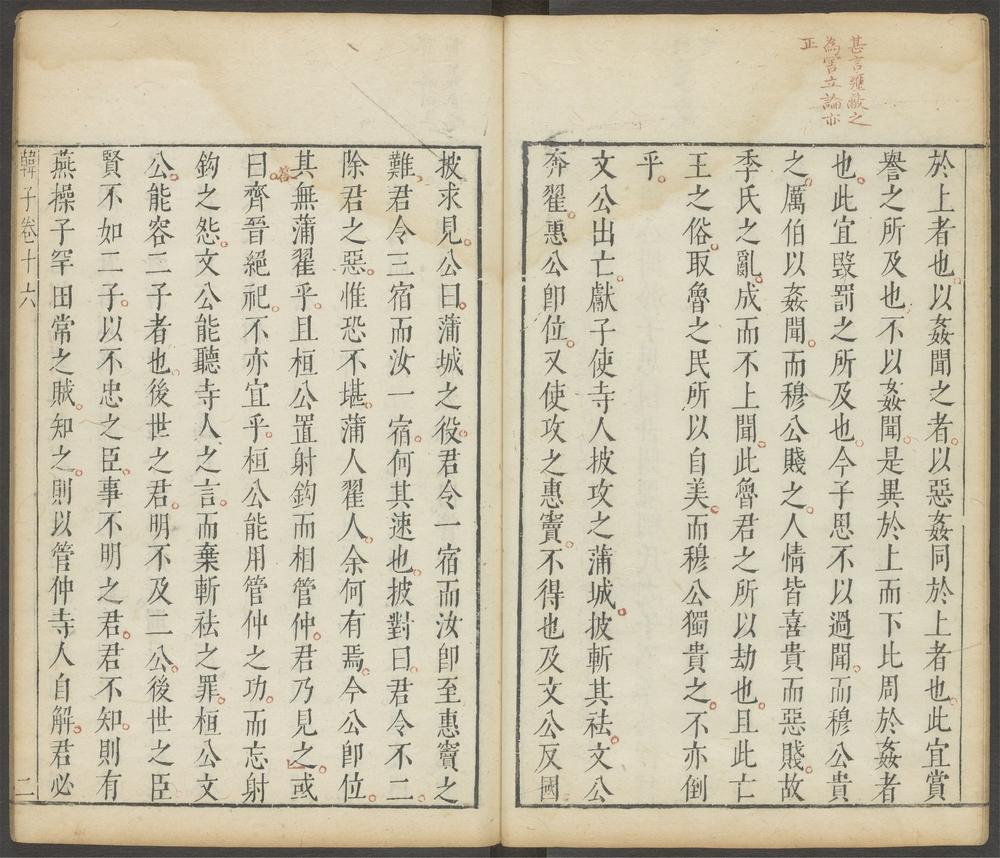 甚言壅蔽之
為害立論亦
正
於上者也以姦聞之者以惡姦同於上者也此宜賞
譽之所及也不以姦聞是異於上而下比周於姦者
也此宜毀罰之所及也今子思不以過聞而穆公貴
之厲伯以姦聞而穆公賤之人情皆喜貴而惡賤故
季氏之亂成而不上聞此魯君之所以劫也且此亡
王之俗取魯之民所以自美而穆公獨貴之不亦倒
乎
文公出亡獻子使寺人披攻之蒲城披斬其祛文公
奔翟惠公卽位又使攻之惠竇不得也及文公反國
披求見公曰蒲城之役君令一宿而汝卽至惠竇之
難君令三宿而汝一宿何其速也披對曰君令不二
除君之惡惟恐不堪蒲人翟人余何有焉今公卽位
其無蒲翟乎且桓公置射鈎而相管仲君乃見之或
曰齊晉絕祀不亦宜乎桓公能用管仲之功而忘射
鈎之怨文公能聽寺人之言而棄斬祛之罪桓公文
公能容二子者也後世之君明不及二公後世之臣
賢不如二子以不忠之臣事不明之君君不知則有
燕操子罕田常之賊知之則以管仲寺人自解君必
韓子卷十六 二